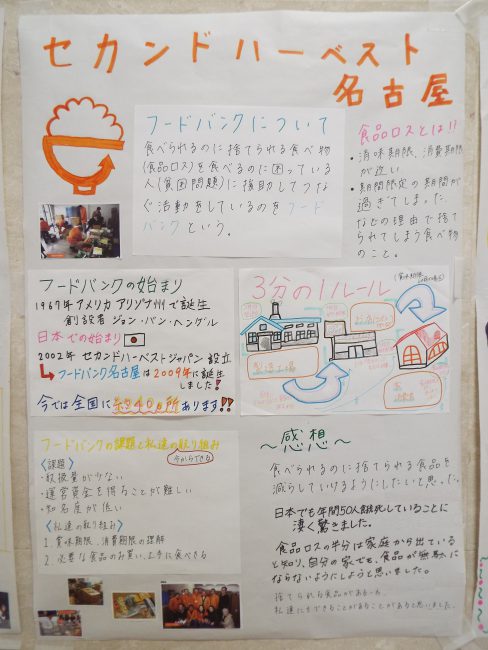 セカンドハーベスト
名古屋
フードバンクについて
食べられるのに捨てられる食べ物
(食品ロス)を食べるのに困っている
人(貧困問題)に援助してつな
ぐ活動をしているのをフード
バンクという。
食品ロスとは!!
・消味期限、消費期限
が近い
・期間限定の期間が
過ぎてしまった
などの理由で捨て
られてしまう食べ物
のこと。
フードバンクの始まり
1967年アメリカ アリゾナ州で誕生
創設者 ジョン・バン・ヘンゲル
日本での始まり
2002年 セカンドハーベストジャパン 設立
フードバンク名古屋は2009年に誕生
しました!
今では全国に約40ヵ所あります!!
3分の1ルール
製造工場
お店
フードバンクの課題と私達の取り組み
今からできる
〈課題〉
・取扱量が少ない
・運営資金を得ることが難しい
・知名度が低い
〈私達の取り組み〉
1.賞味期限、消費期限の理解
2.必要な食品のお買い上手に食べきる
〜感想〜
食べられるのに捨てられる食品を
減らしていけるようにしたいと思った。
日本でも年間50人餓死していることに
凄く驚きました。
食品ロスの半分は家庭から出ている
と知り、自分の家でも、食品が無駄に
ならないようにしようと思いました。
捨てられる食品があるから、
私達にもできることがあることがあると思いました。